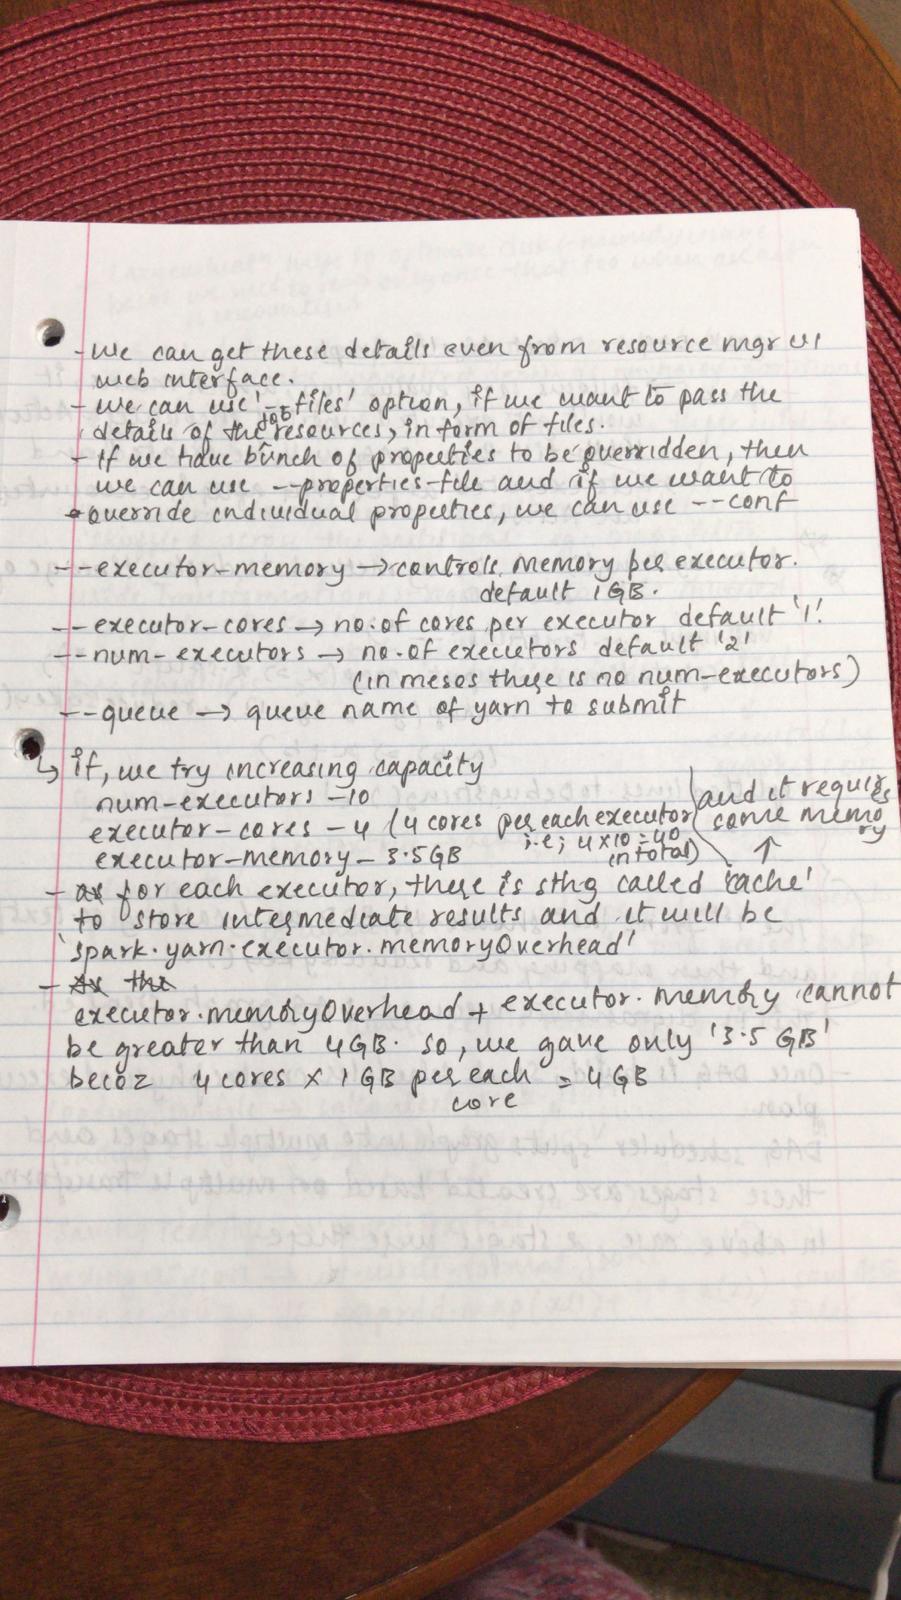 - We can get these details even from resource mgr UI
web interface.
- We can use '--files' option, if we want to pass the
details of the job resources, in form of files.
- If we have bunch of properties to be overridden, then
we can use --properties-file and if we want to
override individual properties, we can use --conf
- --executor-memory → controls memory per executor.
default 1GB.
- --executor-cores → no. of cores per executor default '1'.
- --num-executors → no. of executors default '2'
(in mesos there is no num-executors)
- --queue → queue name of yarn to submit
↳ if, we try increasing capacity
num-executors - 10
executor-cores - 4 (4 cores per each executor
i.e; 4 x 10 = 40
in total)
and it requires
some memory
executor-memory - 3.5GB
- for each executor, there is sthg called 'cache'
to store intermediate results and it will be
'spark.yarn.executor.memoryOverhead'
- As the
executor.memoryOverhead + executor.memory cannot
be greater than 4GB. so, we gave only '3.5 GB'
becoz 4 cores x 1 GB per each = 4GB
core